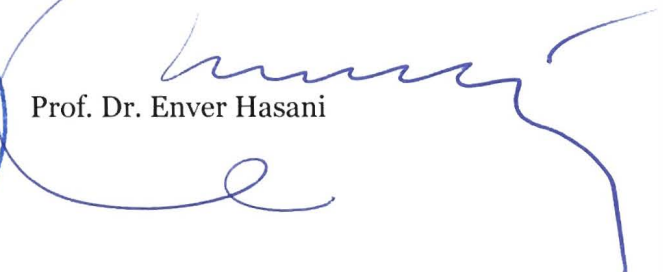 Prof. Dr. Enver Hasani